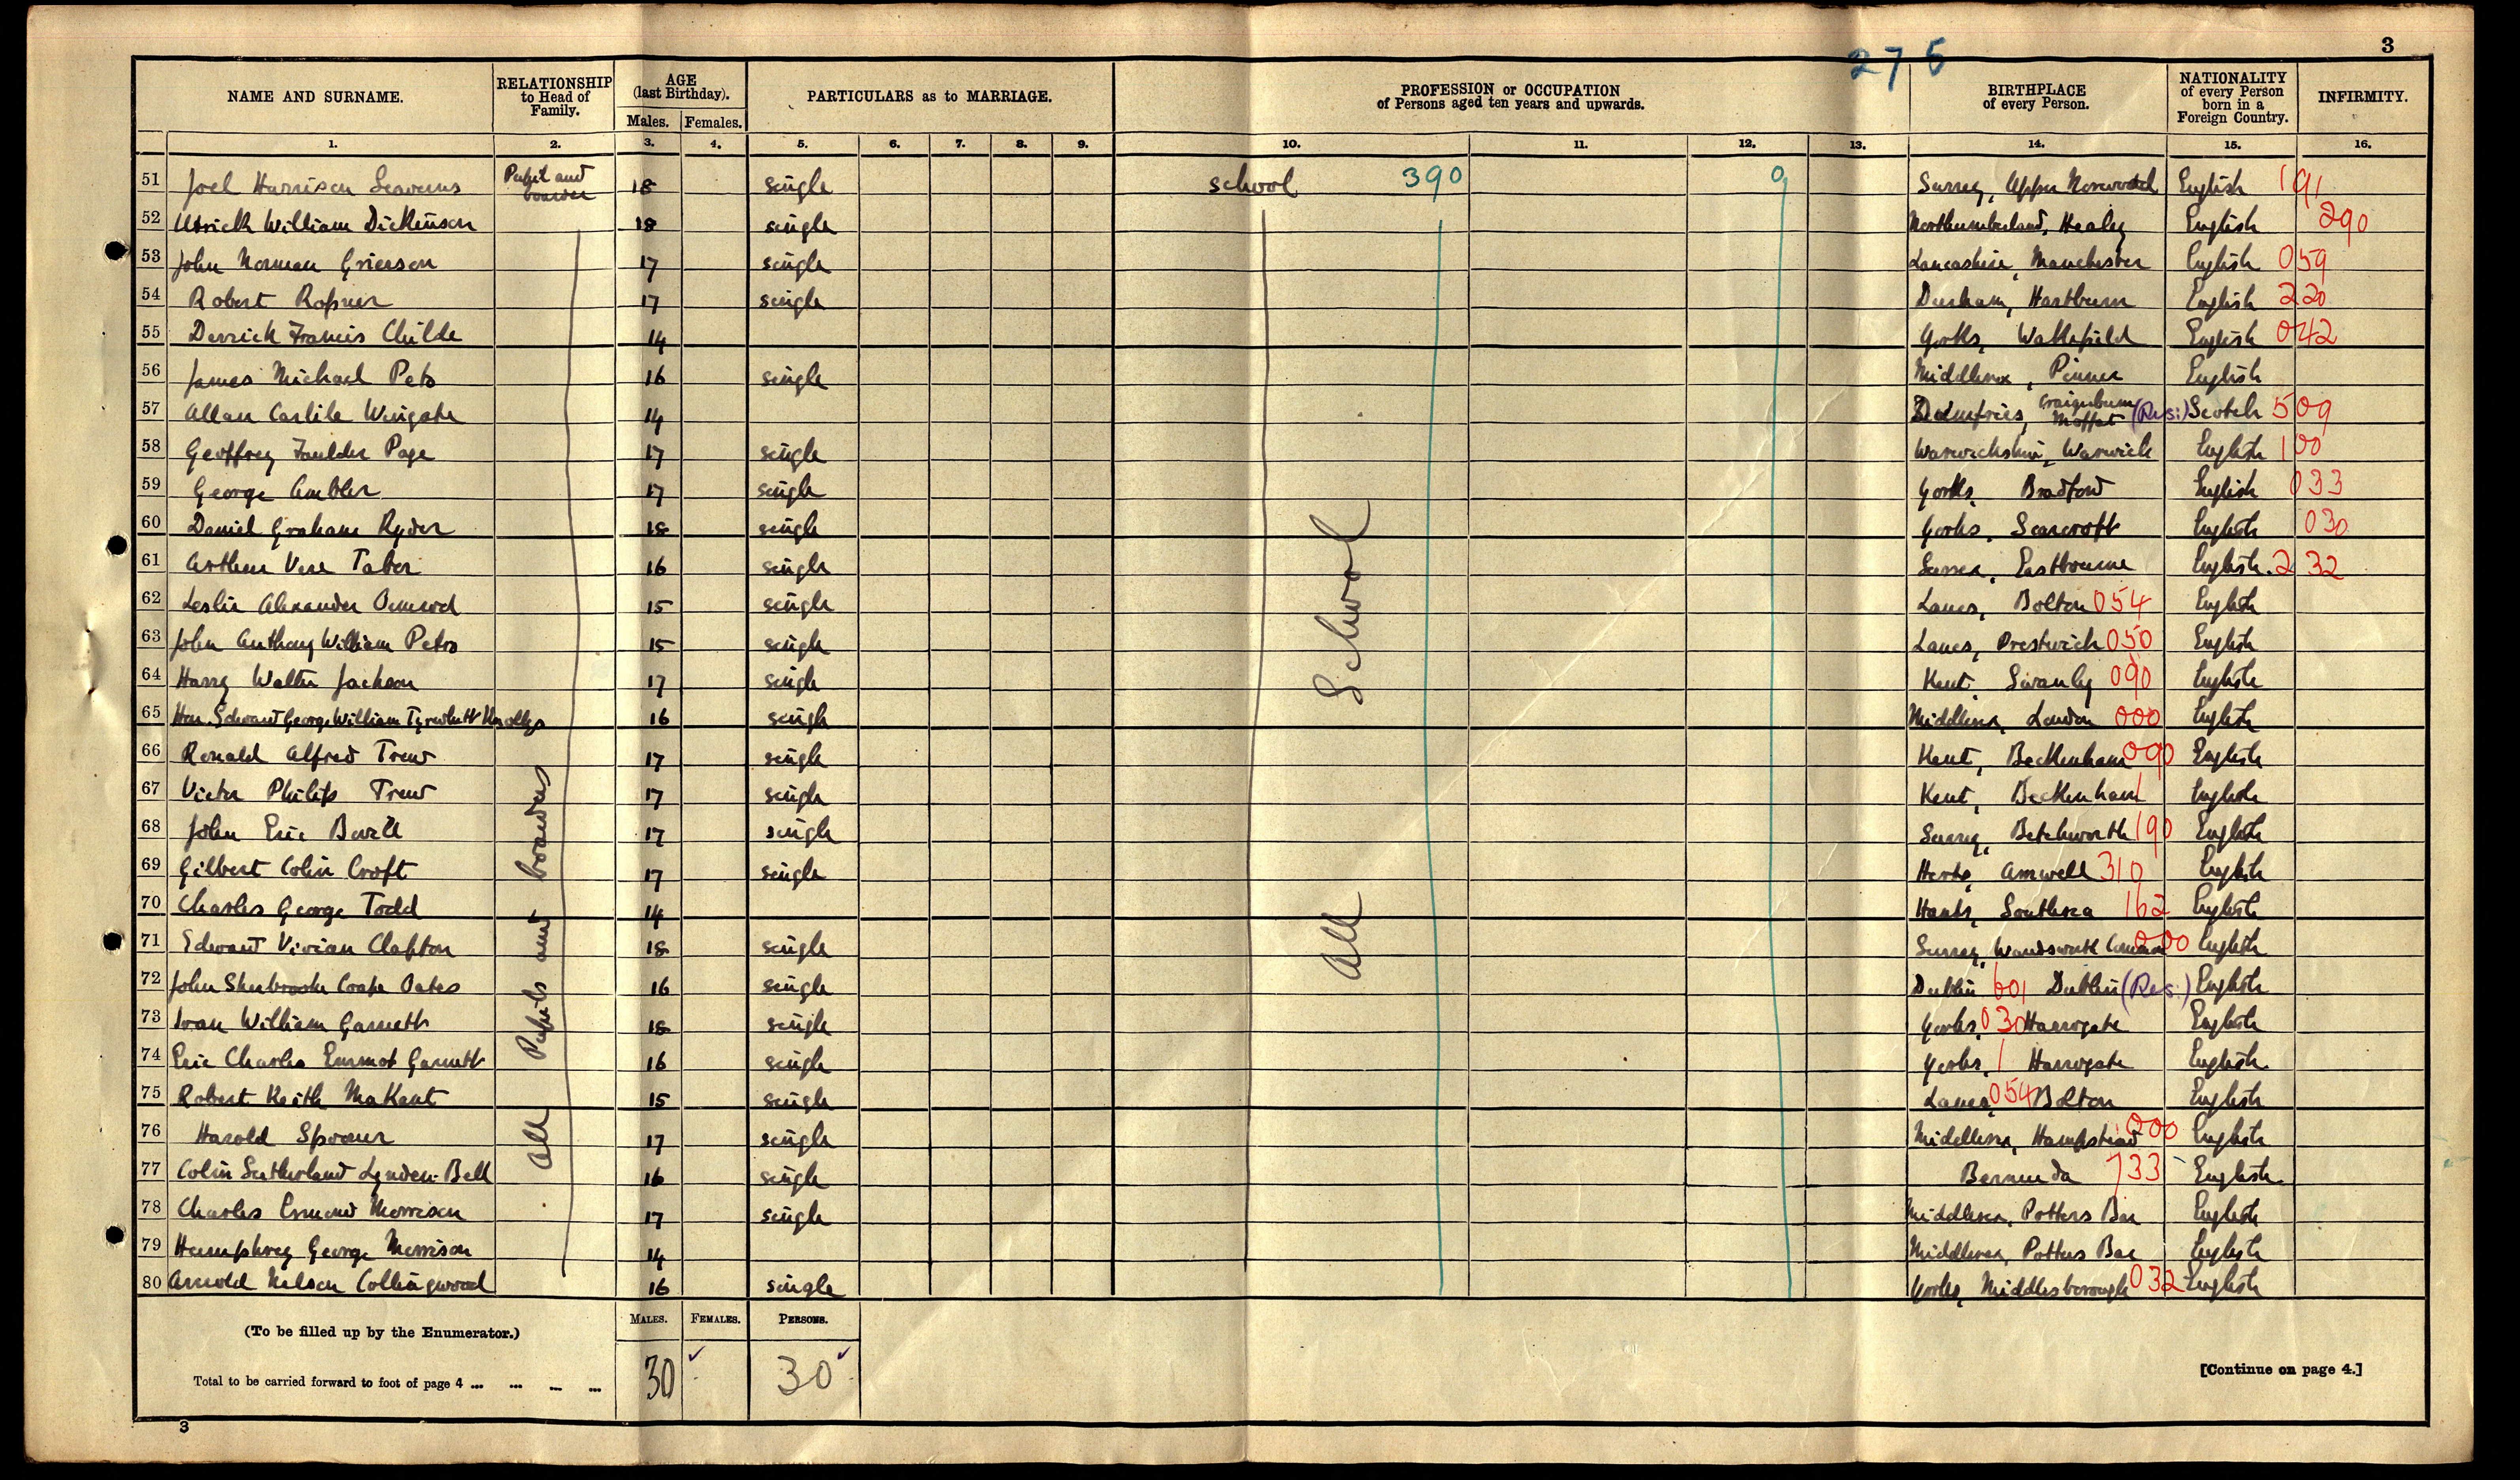 275
3
NAME AND SURNAME. RELATIONSHIP to Head of Family. AGE (last Birthday). PARTICULARS as to MARRIAGE. PROFESSION or OCCUPATION of Persons aged ten years and upwards. BIRTHPLACE of every Person. NATIONALITY of every Person born in a Foreign Country. INFIRMITY.
Males. Females.
1. 2. 3. 4. 5. 6. 7. 8. 9. 10. 11. 12. 13. 14. 15. 16.
51 Joel Harrison Seaverns Pupil and boarder 18 single school 390 0 Surrey, Upper Norwood English 191
52 William Dickinson 18 single Northumberland, Healey English 290
53 John Norman Grierson 17 single Lancashire, Manchester English 059
54 Robert Ropner 17 single Durham, Hartburn English 220
55 Derrick Francis Childe 14 Yorks, Wakefield English 042
56 James Michael Peto 16 single Middlesex, Pinner English
57 Allan Carlile Wingate 14 Dumfries, Craigieburn Moffat (Res:) Scotch 509
58 Geoffrey Faulder Page 17 single Warwickshire, Warwick English 100
59 George Ambler 17 single Yorks, Bradford English 033
60 Daniel Graham Ryder 18 single Yorks, Scarcroft English 030
61 Arthur Vere Taber 16 single Sussex, Eastbourne English. 232
62 Leslie Alexander Ormrod 15 single Lancs, Bolton 054 English
63 John Anthony William Peto 15 single Lancs, Prestwich 050 English
64 Harry Walter Jackson 17 single Kent, Swanley 090 English
65 Hon. Edward George William Tyrwhitt Knollys 16 single Middlesex, London 000 English
66 Ronald Alfred Trew 17 single Kent, Beckenham 090 English
67 Victor Philip Trew 17 single Kent, Beckenham English
68 John Eric 17 single Surrey, Betchworth 190 English
69 Gilbert Colin Croft 17 single Herts, Amwell 310 English
70 Charles George Todd 14 Hants, Southsea 162 English
71 Edward Vivian Clapton 18 single Surrey, Wandsworth Common 000 English
72 John Sherbrooke Coape Oates 16 single Dublin 601 Dublin (Res.) English
73 Ivan William Garnett 18 single Yorks, 030 Harrogate English
74 Eric Charles Emmot Garnett 16 single Yorks, Harrogate English
75 Robert Keith MaKant 15 single Lancs, 054 Bolton English
76 Harold Spooner 17 single Middlesex, Hampstead 000 English
77 Colin Sutherland Lynden-Bell 16 single Bermuda 733 English
78 Charles Esmond Morrison 17 single Middlesex, Potters Bar English
79 Humphrey George Morrison 14 Middlesex, Potters Bar English
80 Arnold Nelson Collingwood 16 single Yorks, Middlesborough 032 English
All Pupils and boarders
All School
(To be filled up by the Enumerator.) MALES. FEMALES. PERSONS.
Total to be carried forward to foot of page 4 ... ... ... ... 30 30
[Continue on page 4.]
3